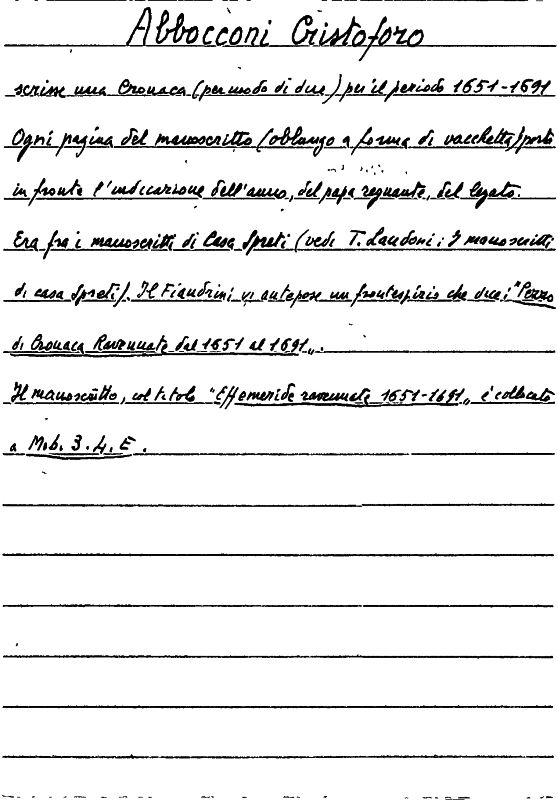 Abbocconi Cristoforo
scrisse una Cronaca (per modo di dire) per il periodo 1651-1691
Ogni pagina del manoscritto (oblungo a forma di vacchetta) porta
in fronte l'indicazione dell'anno, del papa regnante, del legato.
Era fra i manoscritti di Casa Spreti (vedi T. Landoni: I manoscritti
di casa Spreti). Il Fiandrini vi antepose un frontespizio che dice: "Pezzo
di Cronaca Ravennate dal 1651 al 1691".
Il manoscritto, col titolo "Effemeride ravennate 1651-1691" è collocato
a Mob. 3.4.E.